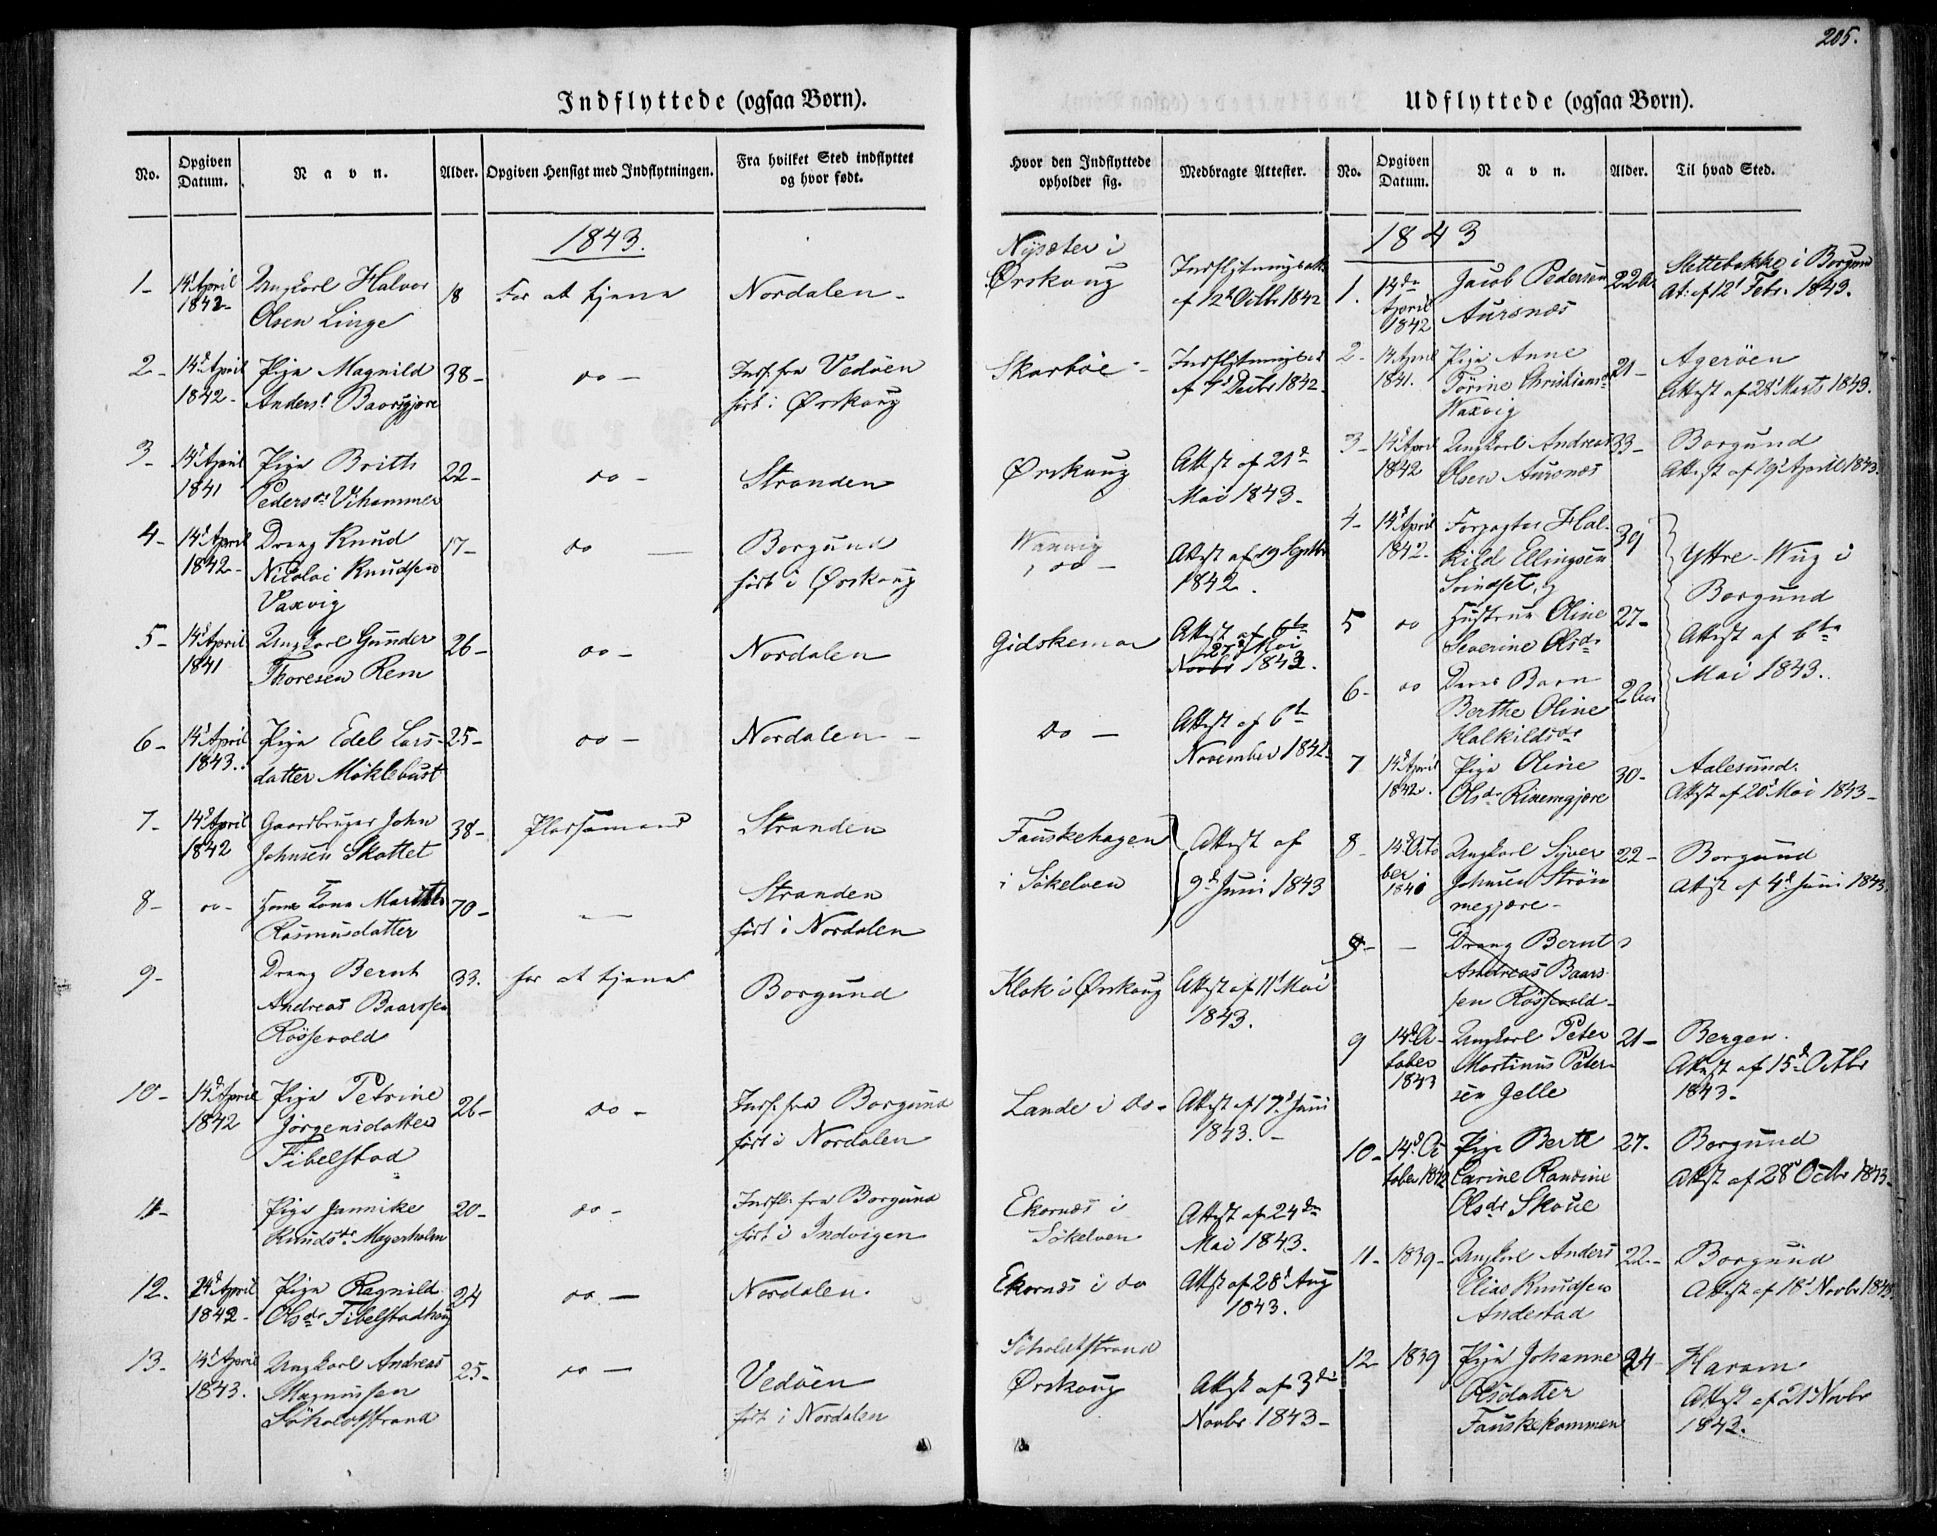 205.
Indflyttede (ogsaa Børn).
No.
Opgiven Datum.
Navn.
Alder.
Opgiven Hensigt med Indflytningen.
Fra hvilket Sted indflyttet og hvor født.
Hvor den Indflyttede opholder sig.
Medbragte Attester.
1843.
1- 14d April 1842- Ungkarl Halvor Olsen Linge 18 For at tjene Nordalen- Nysæter i Ørskoug Indflytningsatt. af 12t Octbr 1842
2- 14d April 1842- Pige Magnild Anders Baarsgjære 38- do- Indf. fra Vedøen født i Ørskoug Skarbøe-
3- 14d April 1841 Pige Brith Pedersdr Vihammer 22- do- Stranden Ørskoug Attest af 21de Mai 1843-
4- 14d April 1842- Dreng Knud Nicolai Knudsen Vaxvig 17- do- Borgund født i Ørskoug Waxvig i do- Attest af 19 Septbr 1842.
5- 14d April 1841 Ungkarl Gunder Thoresen Rem 26- do- Nordalen Gidskemoe Attest af 27d Mai 1843.
6- 14d April 1843. Pige Edel Larsdatter Møklebust 25- do- Nordalen- Do- Attest af 6te November 1842
7- 14d April 1842 Gaardbruger John Johnsen Skottet 38- Pladsemand Stranden Fauskehagen i Søkelven Attest af 9d Juni 1843
8- do- Hans Kone Marithe Rasmusdatter 70- - Stranden født i Nordalen
9- Dreng Bernt Andreas Baarssen Røssevold 33. for at tjene Borgund Klok i Ørskoug Attest af 11t Mai 1843.
10- 14d April 1842 Pige Petrine Jørgensdatter Fibelstad 26- do- Indf. fra Borgund født i Nordalen Lande i do- Attest af 17d Juni 1843.-
11- Pige Jannike Knudsdr Meyerholm 20- do- Indfl. fra Borgund født i Indvigen Ekornæs i Søkelven Attest af 24de Mai 1843.
12. 14d April 1842- Pige Ragnild Olsdr Fibelstadhoug 24 do- Nordalen. Ekornæs i do Attest af 28d Aug 1843.
13- 14d April 1843. Ungkarl Andreas Magnussen Søholdtstrand 25- do- Vedøen født i Nordalen Søholdtstrand Ørskoug Attest af 3die Novbr 1843-
Udflyttede (ogsaa Børn).
No.
Opgiven Datum.
Navn.
Alder.
Til hvad Sted.
1843
1. 14de April 1842 Jacob Pedersen Aursnæs 22 Slettebakke i Borgund At: af 12t Febr. 1843.
2- 14 April 1841. Pige Anne Tørine Christians Waxvig 21- Agerøen Attest af 28d Marts 1843.
3- 14d April 1842 Ungkarl Andreas Olsen Aursnæs 33- Borgund Attest af 19d April 1843.
4- 14d April 1842- Forpagter Halkild Ellingsen 39 Yttre-Wiig i Borgund Attest af 6te Mai 1843.
5 do Hustrue Oline Severine Olsdr 27-
6- do Deres Barn Berthe Oline Halkildsdr
7 14d April 1842. Pige Oline Olsdr 30- Aalesund. Attest af 20d Mai 1843-
8- 14d October Ungkarl Syver Johnsen Strømmegjære- 22- Borgund Attest af 4d Juni 1843.
9- - Dreng Bernt Andreas Baarssen Røssevold-
9 14d October 1843 Ungkarl Peter Martinus Petersen Gjelle 21- Bergen. Attest af 15d Octbr 1843-
10- 14d October 1842 Pige Berte Carine Randine Olsdr Skoue 27- Borgund Attest af 28d Octbr 1843-
11- 1839- Ungkarl Anders Elias Knudsen Andestad 22- Borgund Attest af 18d Novbr 1843.
12- 1839 Pige Johanne Olsdatter Fauskekommen 24- Haram Attest af 21d Novbr 1843.